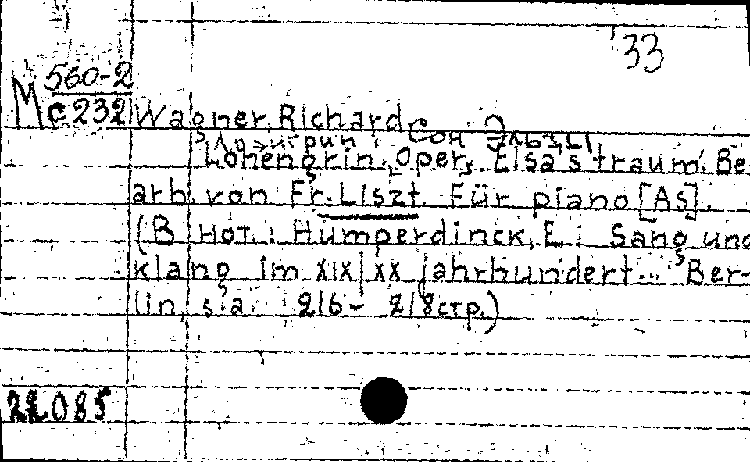 '33
М 560-2
С 232
Wagner, Richard
Лоэнгрин: Сон Эльзы
Lohengrin. Oper. Elsa's traum. Be-
arb. von Fr. Liszt. Für piano [As].
(В нот.: Humperdinck, E.: Sang und
klang im XIX/XX jahrhundert... Ber-
lin, s.a. 216- 218 стр.)
22085